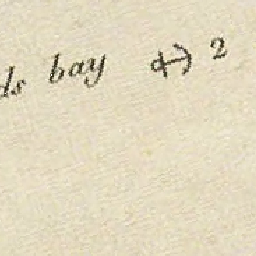 ds bay 2